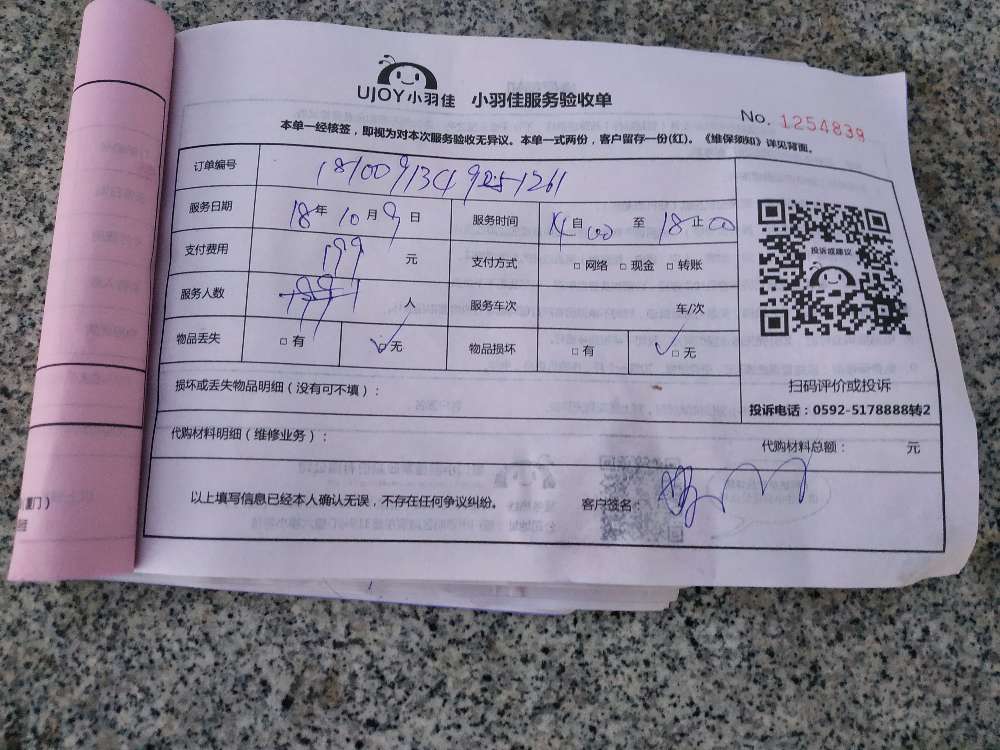 UJOY小羽佳 小羽佳服务验收单
No. 1254839
本单一经核签，即视为对本次服务验收无异议。本单一式两份，客户留存一份(红)。《维保须知》详见背面。
订单编号
服务日期 18年 10月 9日 服务时间 14自00 至 18止00
支付费用 199 元 支付方式 □ 网络 □ 现金 □ 转账
服务人数 人 服务车次 车/次
物品丢失 □ 有 □ 无 物品损坏 □ 有 □ 无
投诉或建议
扫码评价或投诉
投诉电话：0592-5178888转2
损坏或丢失物品明细（没有可不填）：
代购材料明细（维修业务）： 代购材料总额： 元
以上填写信息已经本人确认无误，不存在任何争议纠纷。 客户签名：